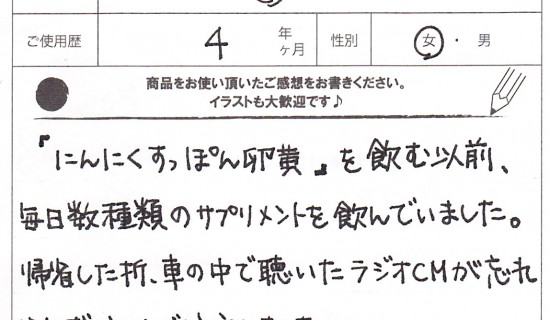 ご使用歴 4 年 ヶ月 性別 女 ・ 男
商品をお使い頂いたご感想をお書きください。
イラストも大歓迎です♪
『にんにくすっぽん卵黄』を飲む以前、
毎日数種類のサプリメントを飲んでいました。
帰省した折、車の中で聴いたラジオCMが忘れ